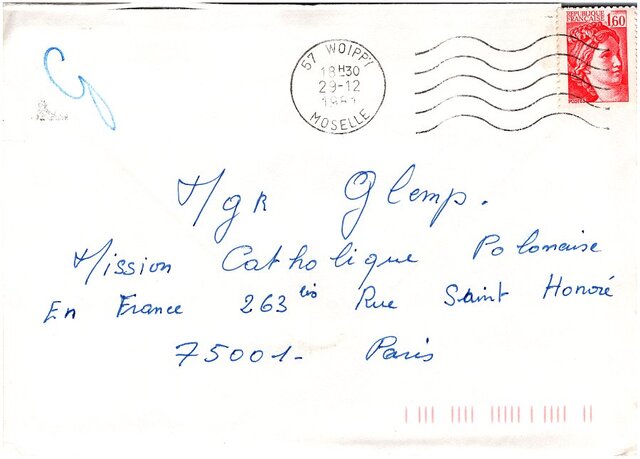 57 WOIPPY
18H30
29-12
1981
MOSELLE
REPUBLIQUE
FRANCAISE
1,60
POSTES
Mgr Glemp.
Mission Catholique Polonaise
En France 263 bis Rue Saint Honoré
75001- Paris